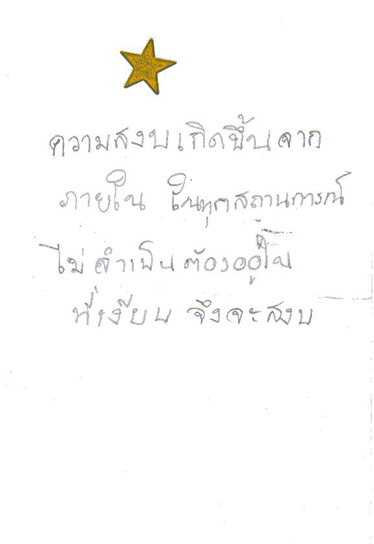 ความสงบเกิดขึ้นจาก
ภายใน ในทุกสถานการณ์
ไม่จำเป็นต้องอยู่ใน
ที่เงียบ จึงจะสงบ